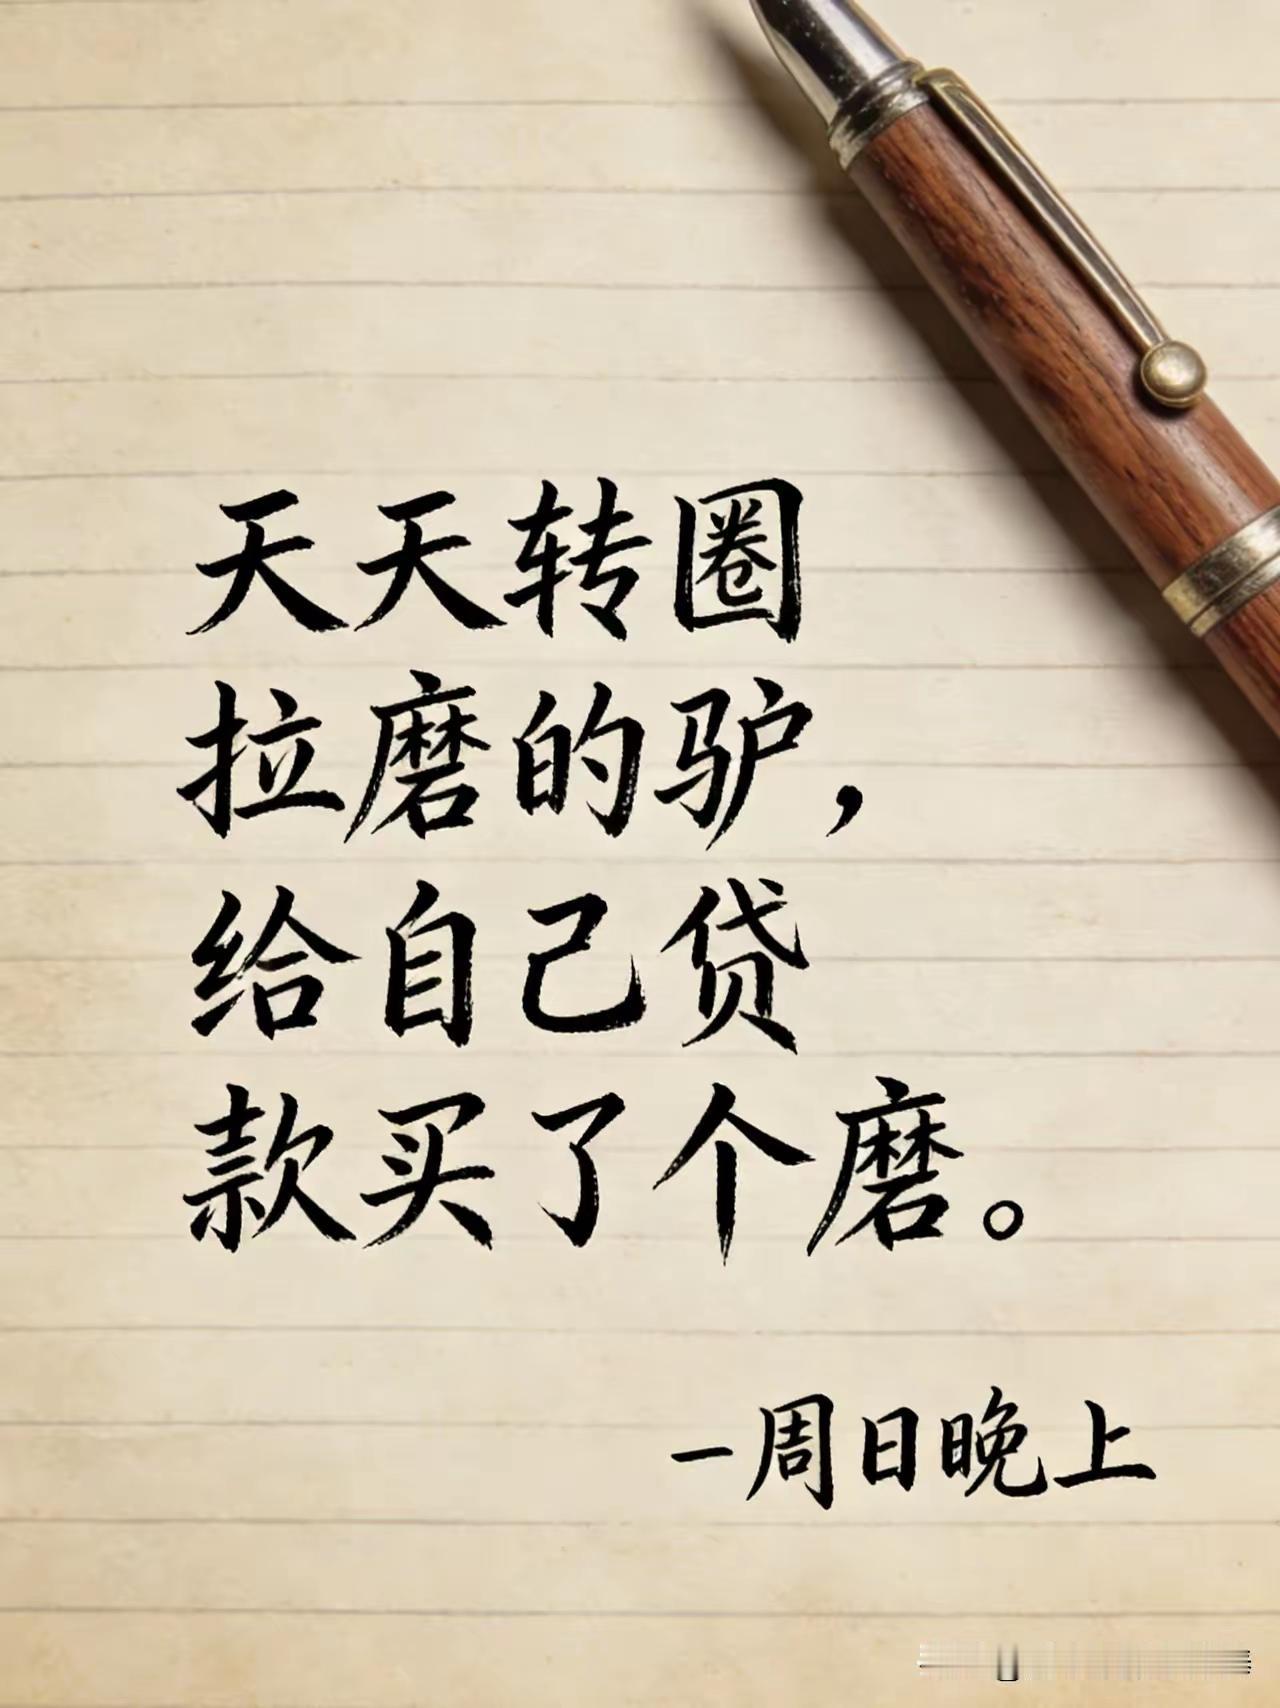 天天转圈
拉磨的驴，
给自己贷
款买了个磨。
-周日晚上